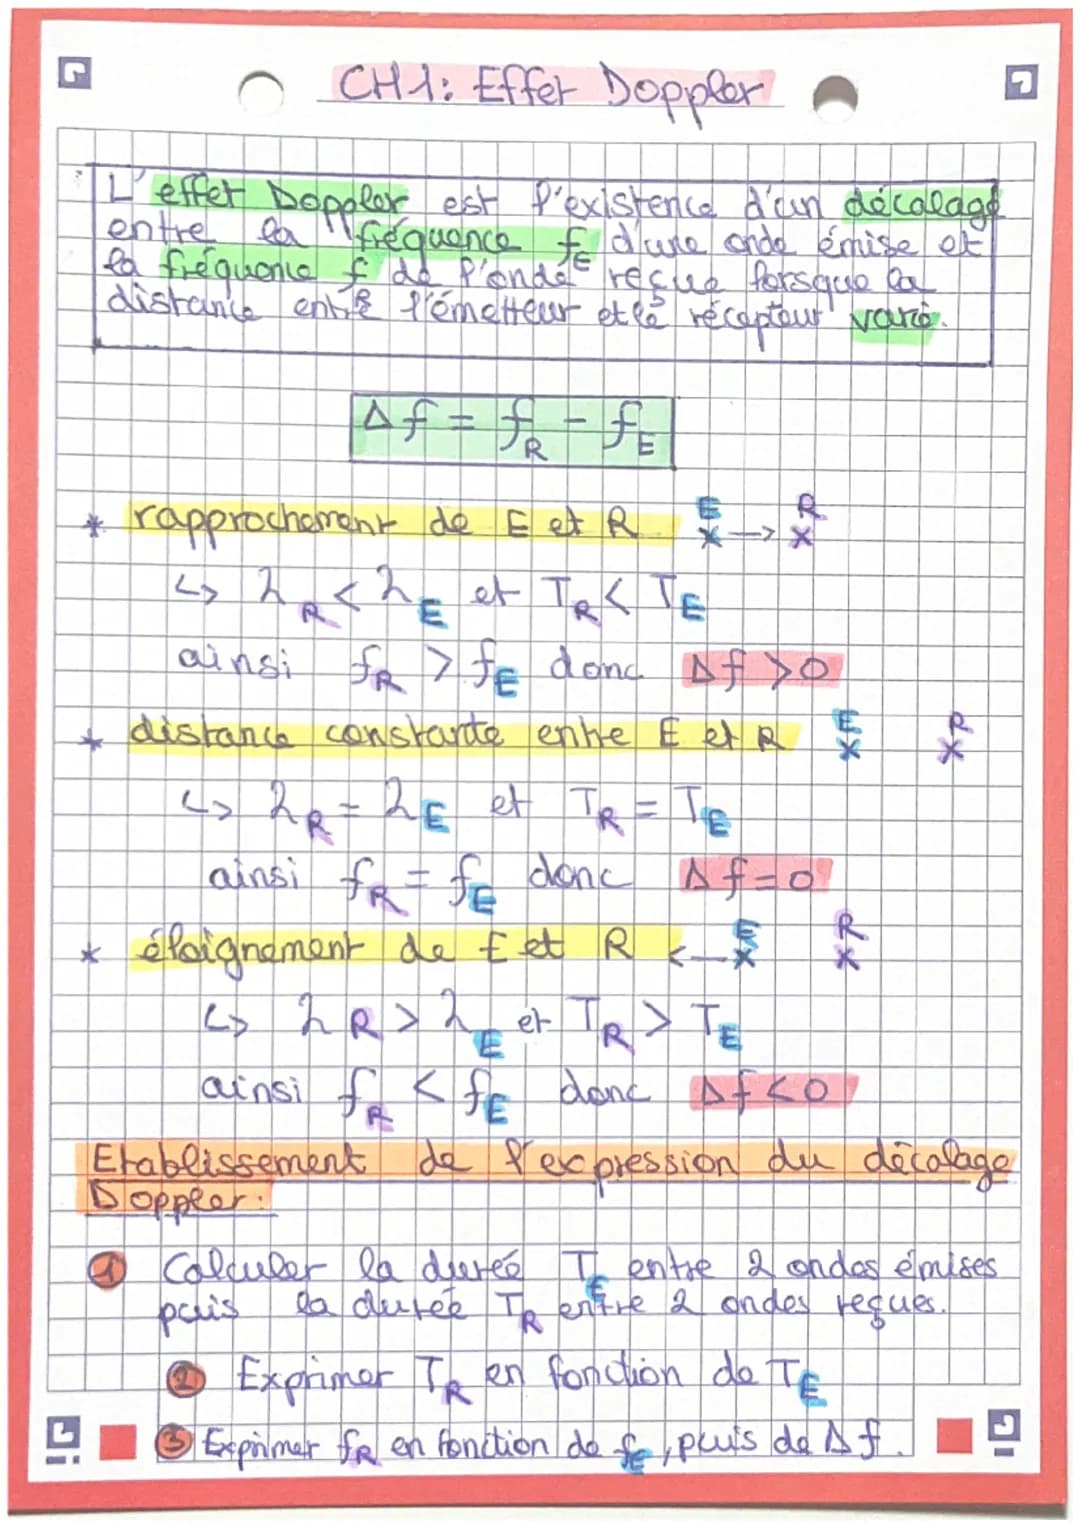 CH1: Effet Doppler
L'effet Doppler est l'existence d'un décalage
entre la fréquence fE d'une onde émise et
la fréquence f de l'onde reçue lorsque la
distance entre l'émetteur et le récepteur varie.
Δf = fR - fE
* rapprochement de E et R E R
x → x
↳ λR < λE et TR < TE
ainsi fR > fE donc Δf > 0
* distance constante entre E et R E R
x x
↳ λR = λE et TR = TE
ainsi fR = fE donc Δf = 0
* éloignement de E et R E R
← x x
↳ λR > λE et TR > TE
ainsi fR < fE donc Δf < 0
Etablissement de l'expression du décalage
Doppler :
1 Calculer la durée TE entre 2 ondes émises
puis la durée TR entre 2 ondes reçues.
2 Exprimer TR en fonction de TE
3 Exprimer fR en fonction de fE, puis de Δf.